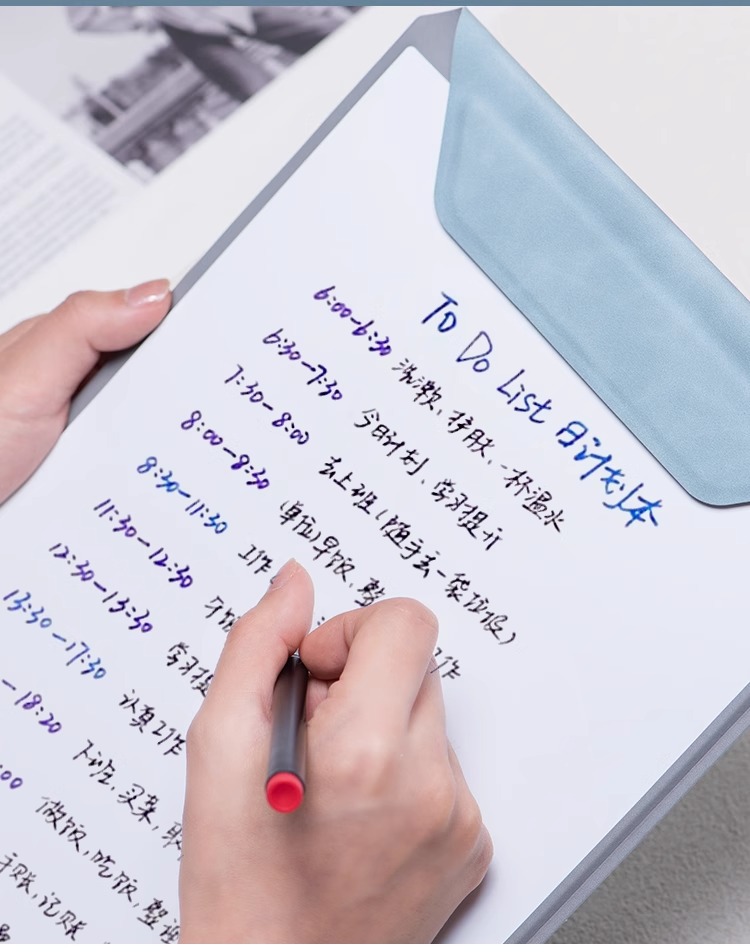 To Do List 日计划本
6:00-6:30 洗漱,护肤,一杯温水
6:30-7:30 今日计划、学习提升
7:30-8:00 去上班(随手丢一袋垃圾)
8:00-8:30 (单位)早饭、整 工作
8:30-11:30 工作
11:30-12:30 午饭
12:30-13:30 学习提
13:30-17:30 认真工作
-18:20 下班,买菜,取
:00 做饭,吃饭,整理
手账,记账